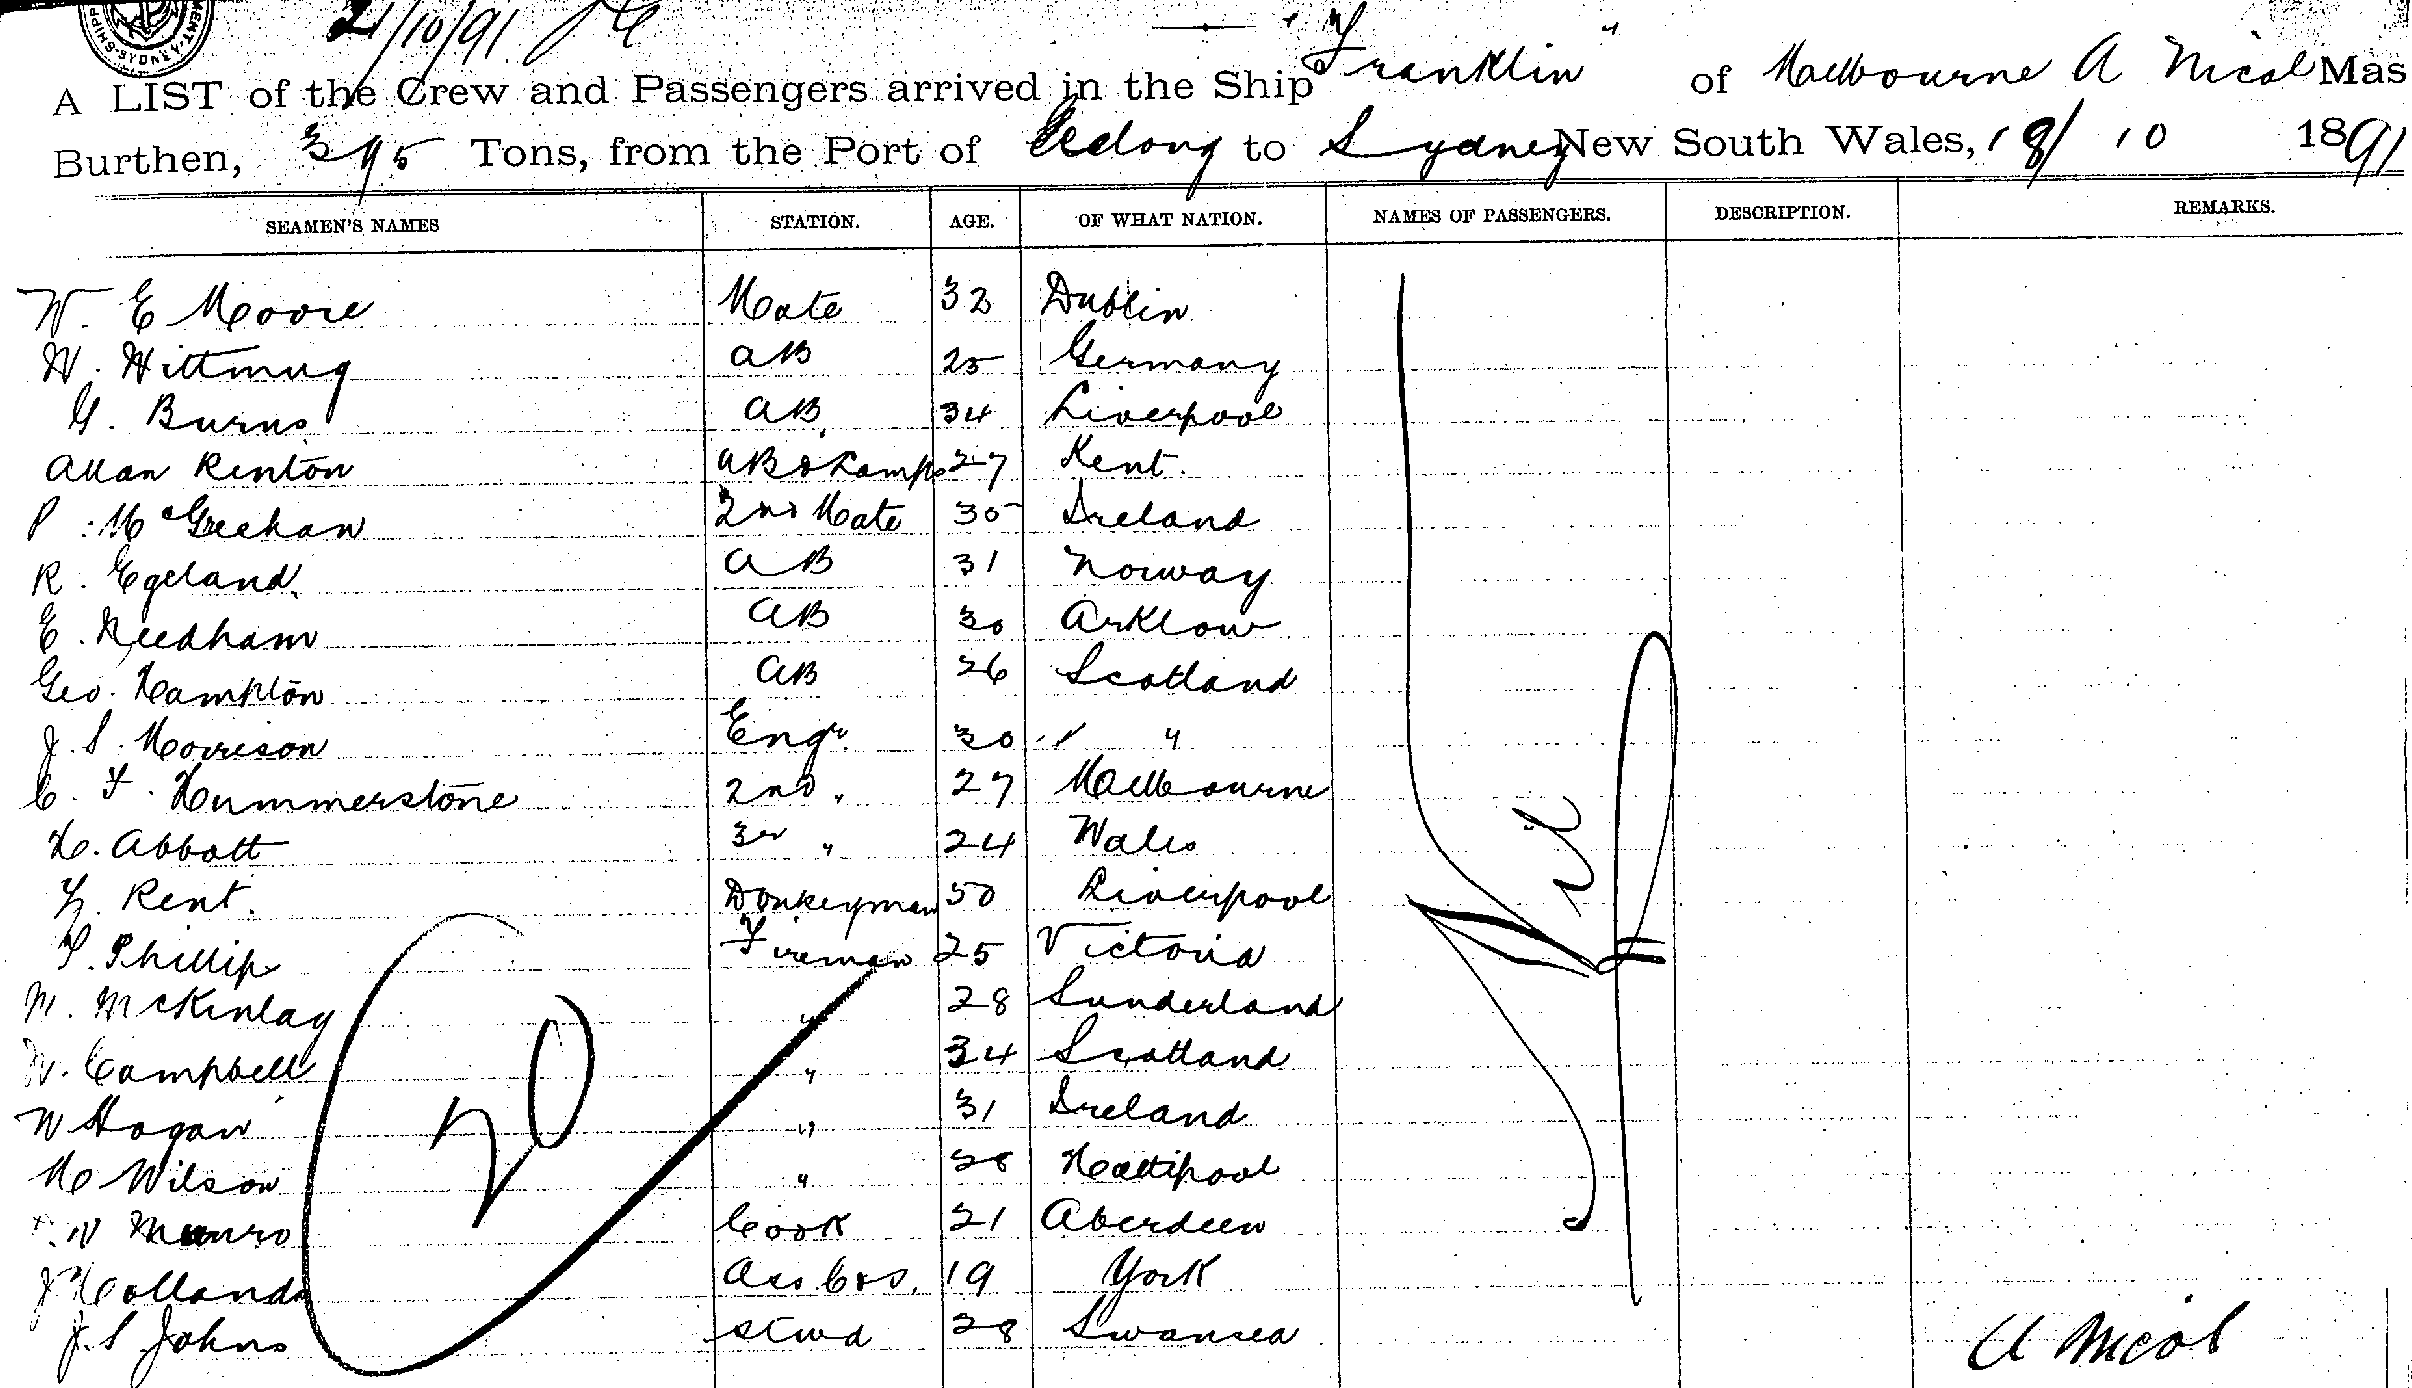 21/10/91
A LIST of the Crew and Passengers arrived in the Ship "Franklin" of Melbourne A Nicol Mas
Burthen, 395 Tons, from the Port of Geelong to Sydney New South Wales, 18/ 10 1891
SEAMEN'S NAMES STATION. AGE. OF WHAT NATION. NAMES OF PASSENGERS. DESCRIPTION. REMARKS.
W. E Moore Mate 32 Dublin
W. Wittmug AB 25 Germany
G. Burns AB 34 Liverpool
Allan Renton AB & Lamps 27 Kent.
P. McGreehan 2nd Mate 35 Ireland
R. Egeland. AB 31 Norway
E. Needham AB 30 Arklow
Geo. Hampton AB 26 Scotland
J. S. Morrison Engr. 30 " "
C. F. Hummerstone 2nd " 27 Melbourne
H. Abbott 3rd " 24 Wales
Kent. Donkeyman 50 Liverpool
Phillip Fireman 25 Victoria
M. McKinlay " 28 Sunderland
Campbell " 34 Scotland
W Hogan " 31 Ireland
M Wilson " 28 Hartlpool
Munro Cook 21 Aberdeen
J Holland Ass Cook 19 York
J. S Johns Stwd 28 Swansea
Nil
20
A Nicol